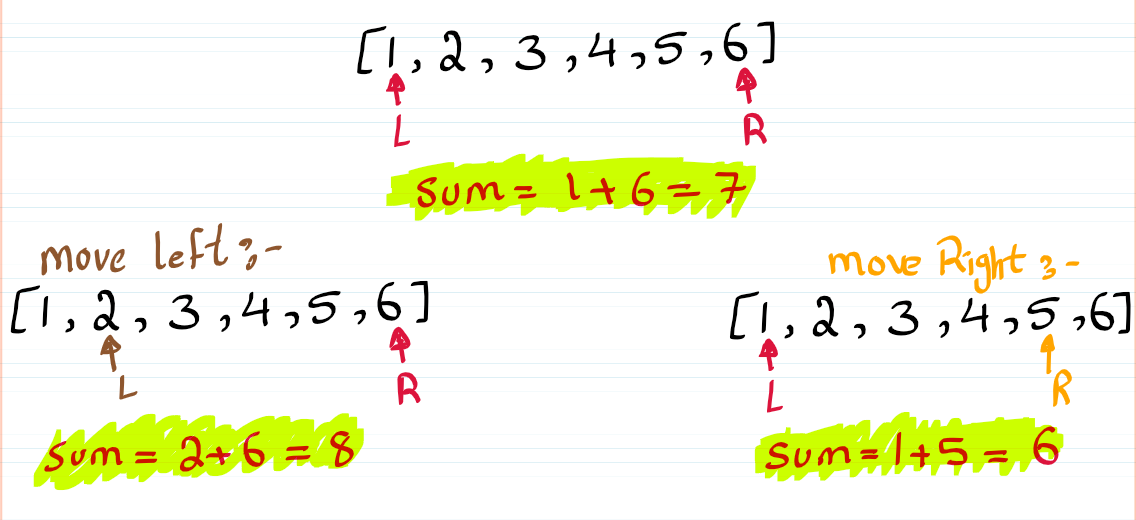 [1, 2, 3, 4, 5, 6]
L R
sum = 1 + 6 = 7
move left :-
[1, 2, 3, 4, 5, 6]
L R
sum = 2 + 6 = 8
move Right :-
[1, 2, 3, 4, 5, 6]
L R
sum = 1 + 5 = 6